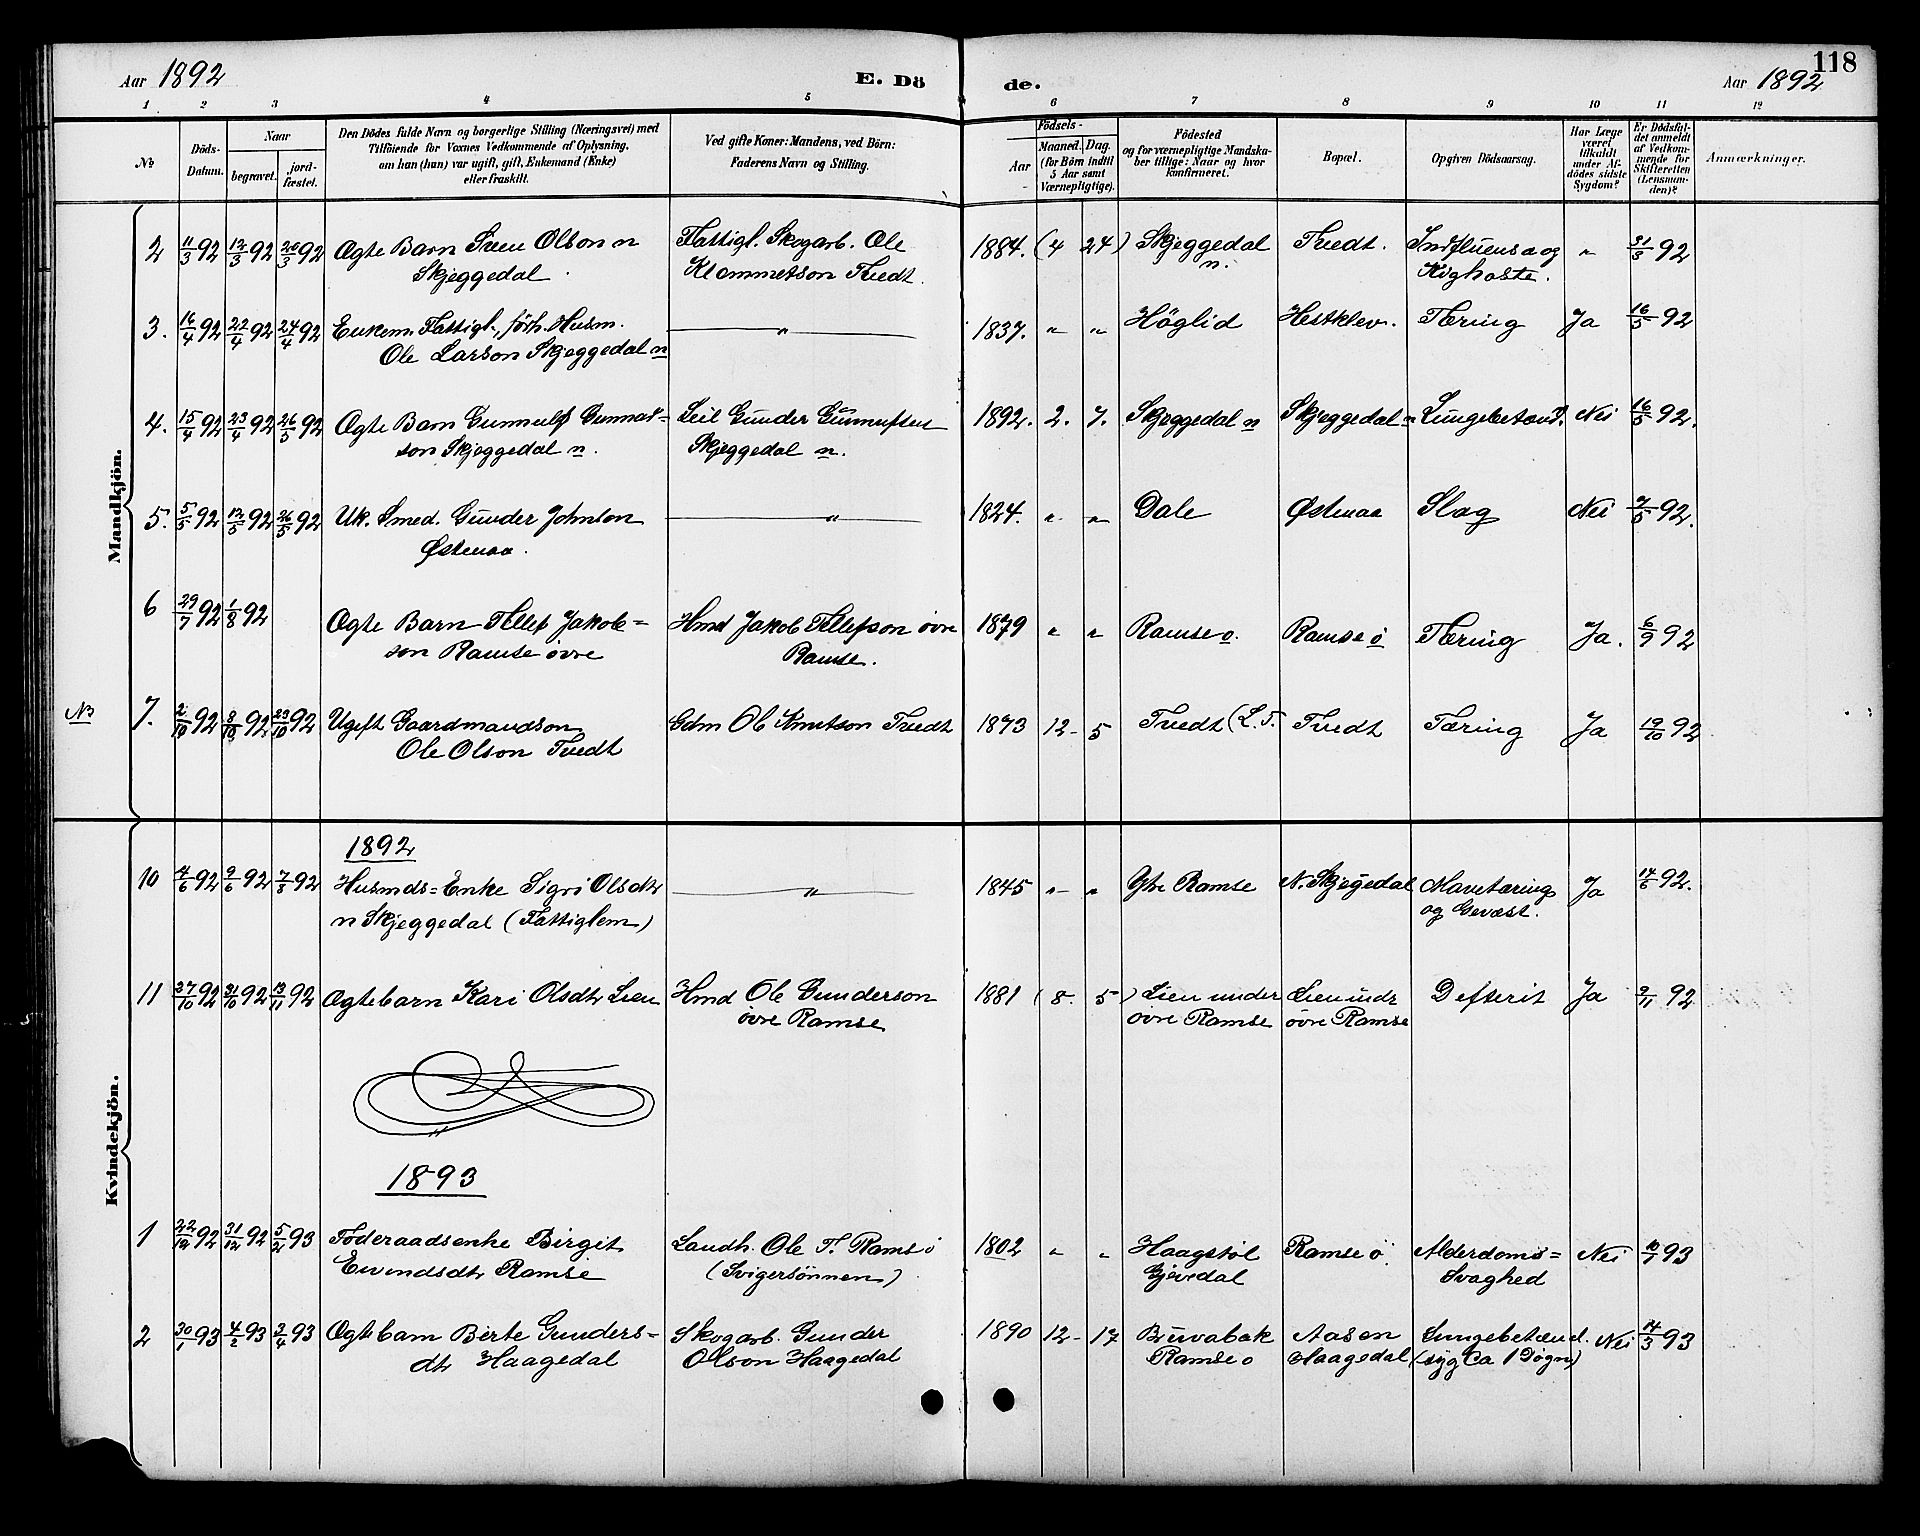 118
Aar 1892
E. Dö
de.
Aar 1892
1 2 3 4 5 6 7 8 9 10 11 12
No
Döds-
Datum.
Naar
begravet.
jord-
fæstet.
Den Dödes fulde Navn og borgerlige Stilling (Næringsvei) med
Tilföiende for Voxnes Vedkommende af Oplysning,
om han (hun) var ugift, gift, Enkemand (Enke)
eller fraskilt.
Ved gifte Koner: Mandens, ved Börn:
Faderens Navn og Stilling.
Födsels-
Aar
Maaned.
Dag.
(for Börn indtil
5 Aar samt
Værnepligtige).
Födested
og for værnepligtige Mandska-
ber tillige: Naar og hvor
konfirmeret.
Bopæl.
Opgiven Dödsaarsag.
Har Læge
været
tilkaldt
under Af-
dödes sidste
Sygdom?
Er Dödsfal-
det anmeldt
af Vedkom-
mende for
Skifteretten
(Lensman-
den)?
Anmærkninger.
Mandkjön.
2 11/3 92 17/3 92 20/3 92 Ægte Barn Sven Olson n
Skjeggedal
Fattigl. Skogarb. Ole
Klemmetson Tvedt.
1884. (4 24) Skjeggedal
n.
Tvedt. Influensa og
Kighoste.
" 31/3 92
3. 16/4 92 22/4 92 24/4 92 Enkem. Fattigl., förh. Husm.
Ole Larson Skjeggedal n
" 1837. " " Höglid Hestklev. Tæring Ja 16/5 92
4. 15/4 92 23/4 92 26/5 92 Ægte Barn Gunnulf Gunnar-
son Skjeggedal n.
Leil Gunder Gunnufsen
Skjeggedal n.
1892. 2. 7. Skjeggedal n Skjeggedal n Lungebetænd. Nei 16/5 92.
5. 5/5 92 12/5 92 26/5 92 Uk. Smed. Gunder Johnson
Østenaa.
" 1824. " " Dale Østenaa Slag Nei 7/5 92.
6 29/7 92 1/8 92 Ægte Barn Tellef Jakob=
son Ramse övre
Hmd Jakob Tellefson övre
Ramse.
1879 " " Ramse o. Ramse ö Tæring Ja. 6/9 92
NB 7. 2/10 92 8/10 92 23/10 92 Ugift Gaardmandsön
Ole Olson Tvedt
Gdm Ol Knutson Tvedt 1873 12- 5 Tvedt (L. T. Tvedt Tæring Ja 19/10 92
Kvindekjön.
1892
10 4/6 92 9/6 92 7/8 92 Husmds=Enke Sigri Olsdtr
n Skjeggedal (Fattiglem)
" 1845 " " Ytre Ramse N. Skjegedal Mavetæring
og Gevæst.
Ja 14/6 92.
11 27/10 92 31/10 92 13/11 92 Ægtebarn Kari Olsdtr Lien Hmd Ole Gunderson
övre Ramse
1881 (8. 5) Lien under
övre Ramse
Lien undr
övre Ramse
Defterit Ja 9/11 92
1893
1 22/12 92 31/12 92 5/2 93 Föderaadsenke Birgit
Eivindsdtr Ramse
Landh. Ole T. Rams ö
(Svigersönnen)
1802 " " Haagstöl
Gjövedal
Ramse ö. Alderdoms=
Svaghed
Nei 10/1 93
2 30/1 93 4/2 93 3/4 93 Ægtebarn Berte Gunders-
dtr Haagedal
Skogarb. Gunder
Olson Haagedal
1890 12- 17 Buvabak
Ramse o
Aasen
Haagedal
Lungebetænd.
(syg Ca 1 Dögn)
Nei 14/3 93